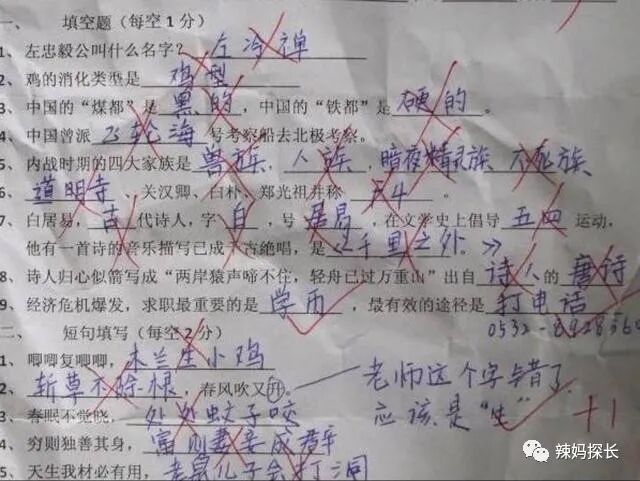 一、 填空题（每空 1 分）
1、左忠毅公叫什么名字？ 左冷禅
2、鸡的消化类型是 鸡型
3、中国的“煤都”是 黑的 ，中国的“铁都”是 硬的 。
4、中国曾派 飞轮海 号考察船去北极考察。
5、内战时期的四大家族是 兽族 ，人族 ，暗夜精灵族 不死族
6、道明寺 、关汉卿、白朴、郑光祖并称 F4 。
7、白居易，古 代诗人，字 白 ，号 居易 ，在文学史上倡导 五四 运动，
他有一首诗的音乐描写已成千古绝唱，是 《千里之外》
8、诗人归心似箭写成“两岸猿声啼不住，轻舟已过万重山”出自 诗人的 唐诗
9、经济危机爆发，求职最重要的是 学历 ，最有效的途径是 打电话
二、 短句填写（每空 2 分）
1、唧唧复唧唧，木兰生小鸡
2、斩草不除根，春风吹又 老师这个字错了
3、春眠不觉晓，处处蚊子咬 应该是“生” +1
4、穷则独善其身，富则妻妾成群
5、天生我材必有用，老鼠儿子会打洞
辣妈探长